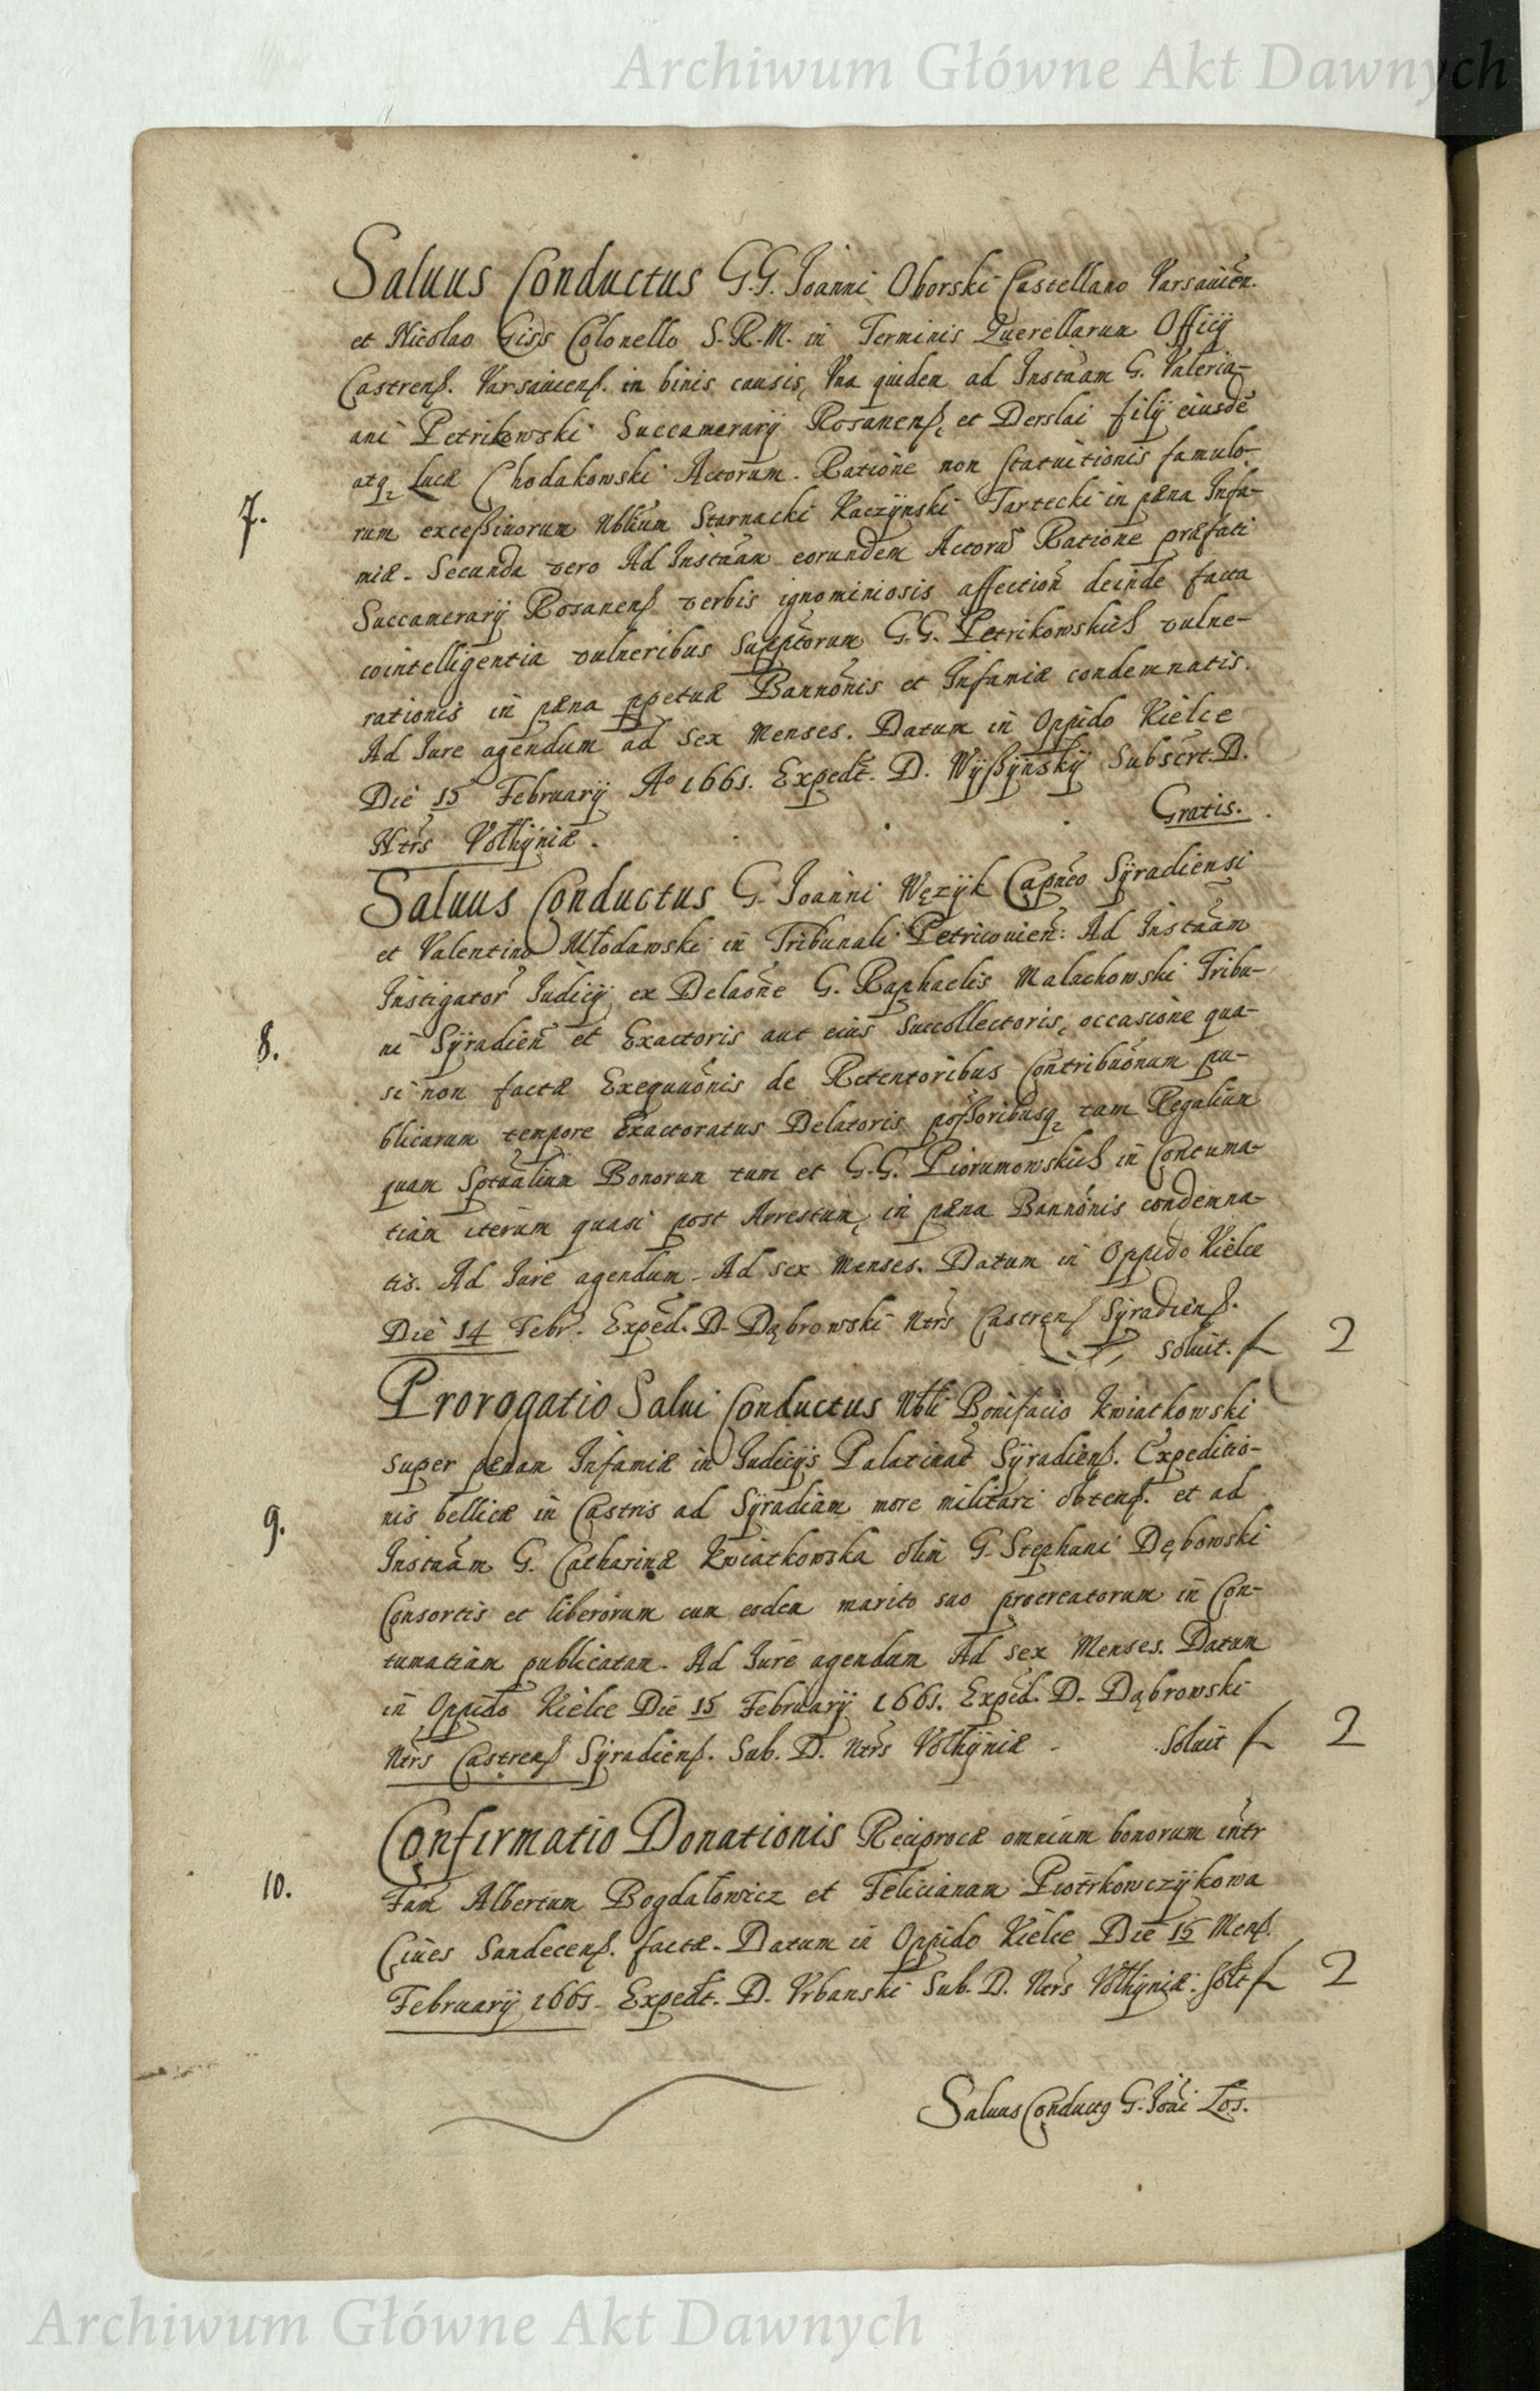 Archiwum Główne Akt Dawnych
Saluus Conductus G.G. Ioanni Oborski Castellano Varsauien.
et Nicolao Giss Colonello S.R.M. in Terminis Querellarum Officij
Castrenß. Varsauienß. in binis causis, Vna quidem ad Instãam G. Valeria-
ani Petrikowski Succamerarij Rosanenß, et Derslai filij eiusdẽ
atq₂ Lucæ Chodakowski Actorum. Ratione non statuitionis famulo-
7.
rum exceßiuorum Nblium Starnacki Kaczÿnski Tartecki in pæna Infa-
miæ. Secunda vero Ad Instãam eorundem Actorũ Ratione præfati
Succamerarij Rosanenß verbis ignominiosis affection deinde facta
cointelligentia vulneribus supptorum G.G. Petrikowskich vulne-
rationis in pæna ppetuæ Bannonis et Infamiæ condemnatis.
Ad Iure agendum ad sex Menses. Datum in Oppido Kielce
Die 15 Februarij Aº 1661. Expedt. D. Wÿßÿnskÿ Subscrt. D.
Ntrs Volhÿniæ.
Gratis.
Saluus Conductus G. Ioanni Węzÿk Capneo Sÿradiensi
et Valentino Młodawski in Tribunali Petricouien: Ad Instãam
Instigator Iudicij ex Delaõne G. Raphaelis Malachowski Tribu-
8.
ni Sÿradien et Exactoris aut eius Succollectoris, occasione qua-
si non factæ Exequuõnis de Retentoribus Contribuõnum pu-
blicarum tempore Exactoratus Delatoris poßoribusq₂ tam Regalium
quam Sptualium Bonorum tum et G.G. Piorumowskich in Contuma-
tiam iterum quasi post Arrestum, in pæna Bannonis condemna-
tis. Ad Iure agendum. Ad sex Menses. Datum in Oppido Kielce
Die 14 Febr. Exped. D. Dąbrowski Ntrs Castrenß Sÿradienß.
soluit. f 2
Prorogatio Salui Conductus Nbli Bonifacio Kwiatkowski
super pænam Infamiæ in Iudicijs Palatinat Sÿradienß. Expeditio-
nis bellicæ in Castris ad Sÿradiam more militari obtenß. et ad
9.
Instãam G. Catharinæ Kwiatkowska olim G. Stephani Dębowski
Consortis et liberorum cum eodem marito suo procreatorum in Con-
tumatiam publicatam. Ad Iure agendum Ad sex Menses. Datum
in Oppido Kielce Die 15 Februarij 1661. Exped. D. Dąbrowski
Ntrs Castrenß Sÿradienß. Sub. D. Ntrs Volhÿniæ. Soluit f 2
Confirmatio Donationis Reciprocæ omnium bonorum intr
10.
Fam Albertum Bogdałowicz et Felicianam Piotrkowczÿkowa
Ciues Sandecenß. factæ. Datum in Oppido Kielce Die 15 Menß.
Februarij 1661. Expedt. D. Vrbanski Sub. D. Ntrs Volhÿniæ. Solt f 2
Saluus Conductg G. Ioãi Los.
Archiwum Główne Akt Dawnych